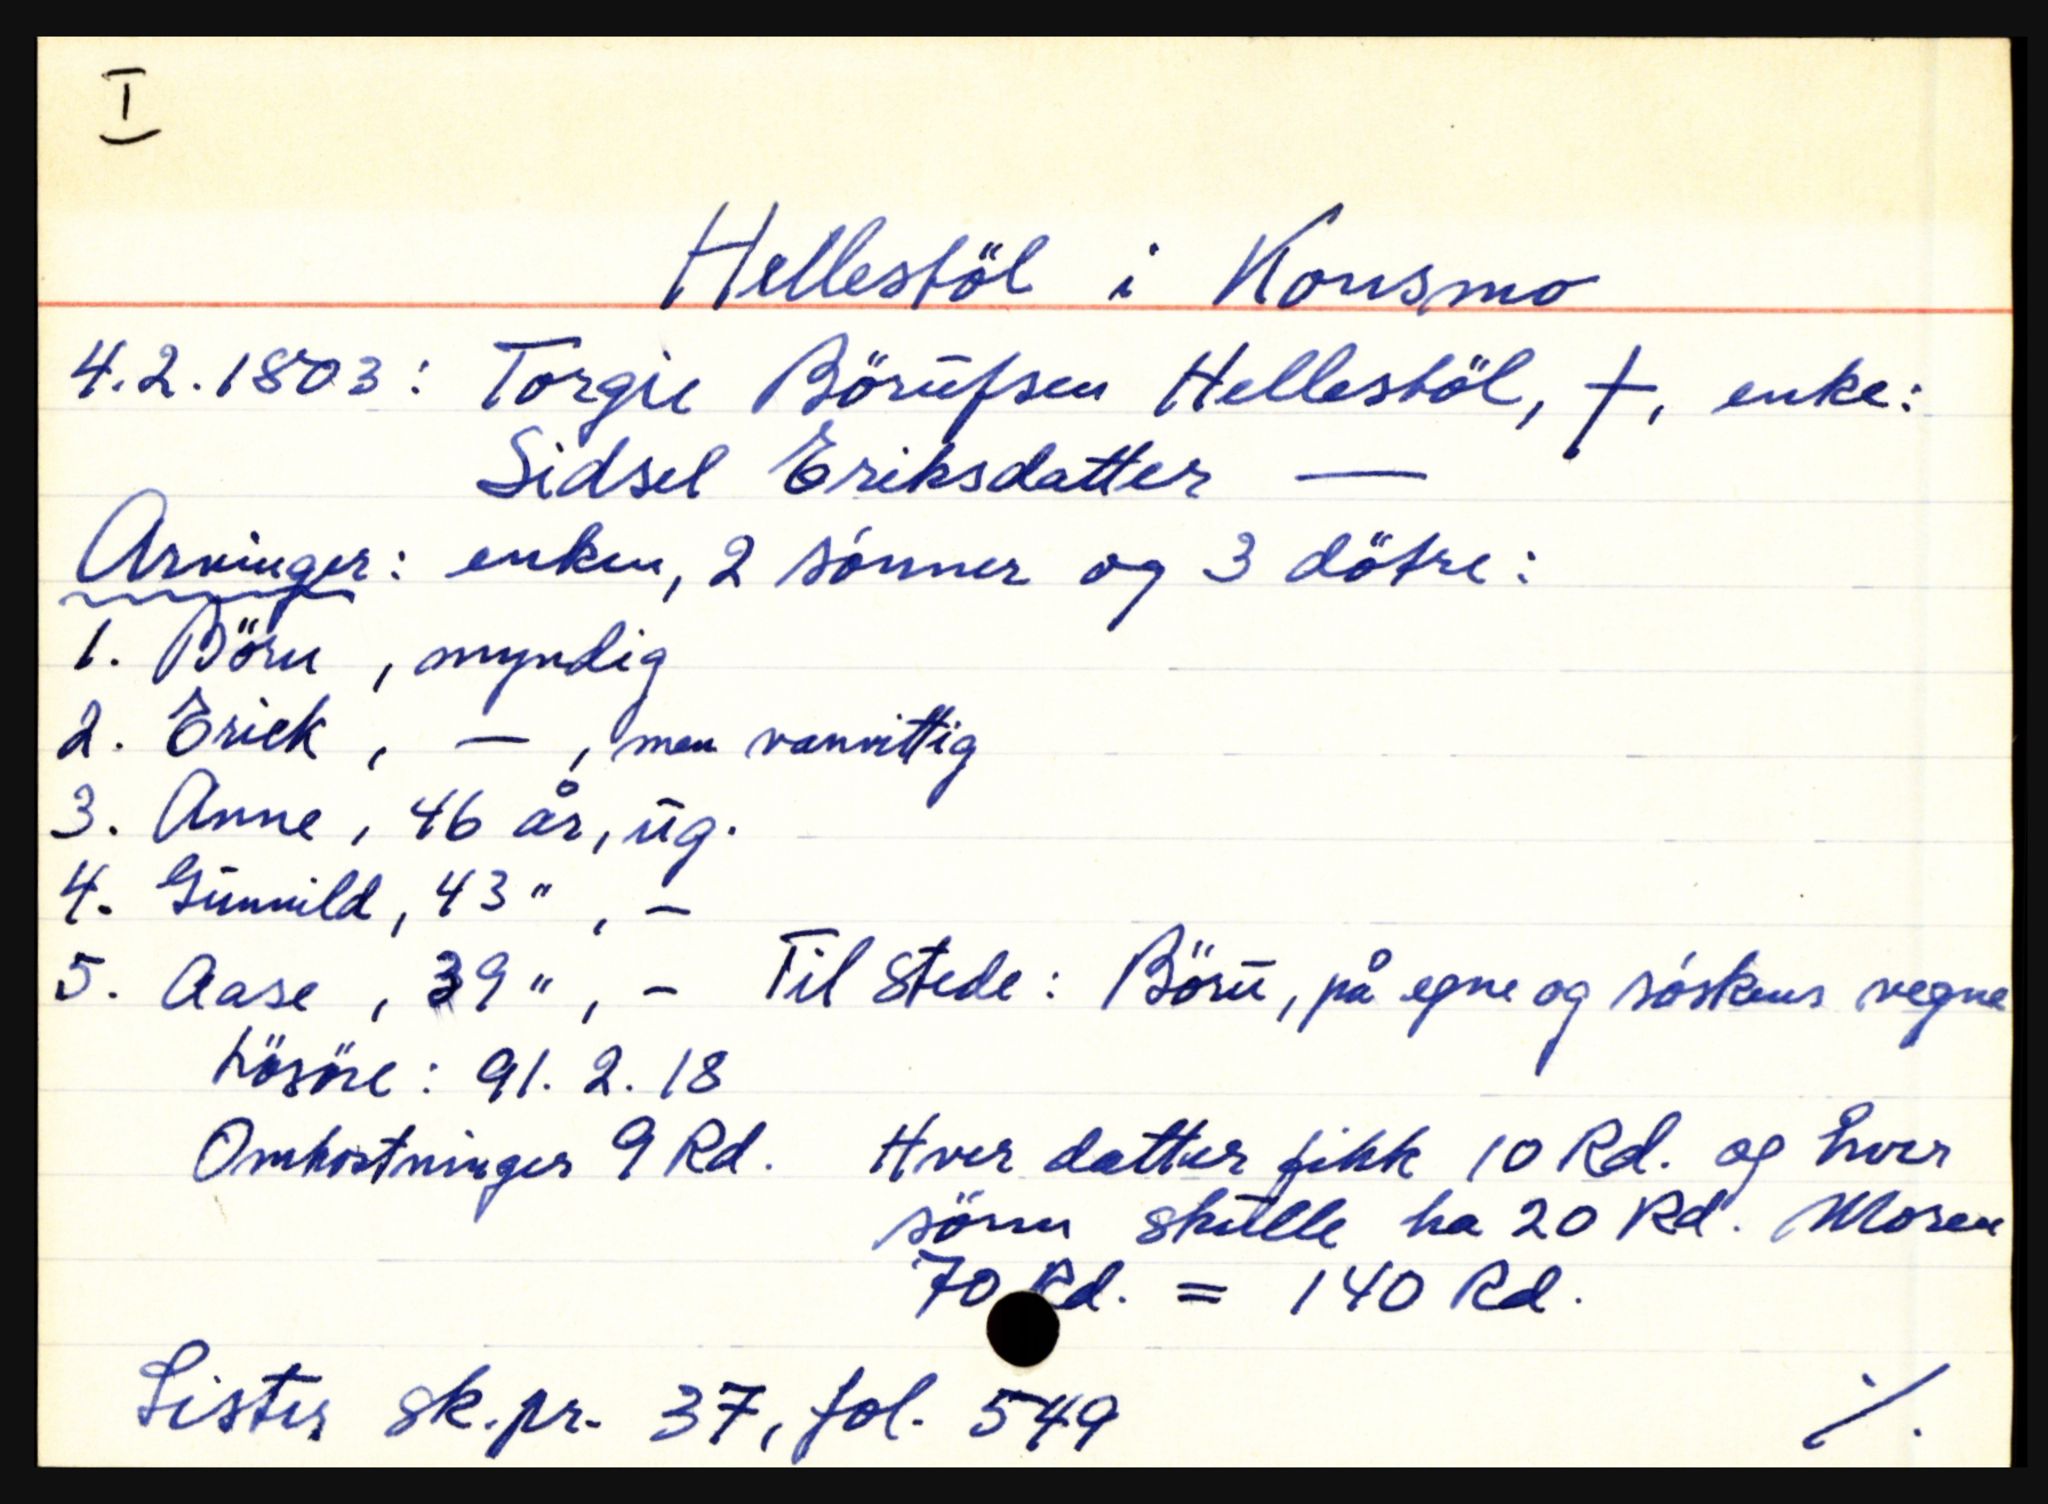 I
Hellestöl i Konsmo
4.2.1803: Torgie Börufsen Hellestöl, †, enke:
Sidsel Eriksdatter —
Arvinger: enken, 2 sönner og 3 dötre:
1. Böru, myndig
2. Erick, —, men vanvittig
3. Anne, 46 år, ug.
4. Gunnild, 43 ", —
5. Aase, 39 ", — Til stede: Böru, på egne og söskens vegne
Lösöre: 91. 2. 18
Omkostninger 9 Rd. Hver datter fikk 10 Rd. og hver
sönn skulle ha 20 Rd. Moren
70 Rd. = 140 Rd.
Lister sk.pr. 37, fol. 549 ./.